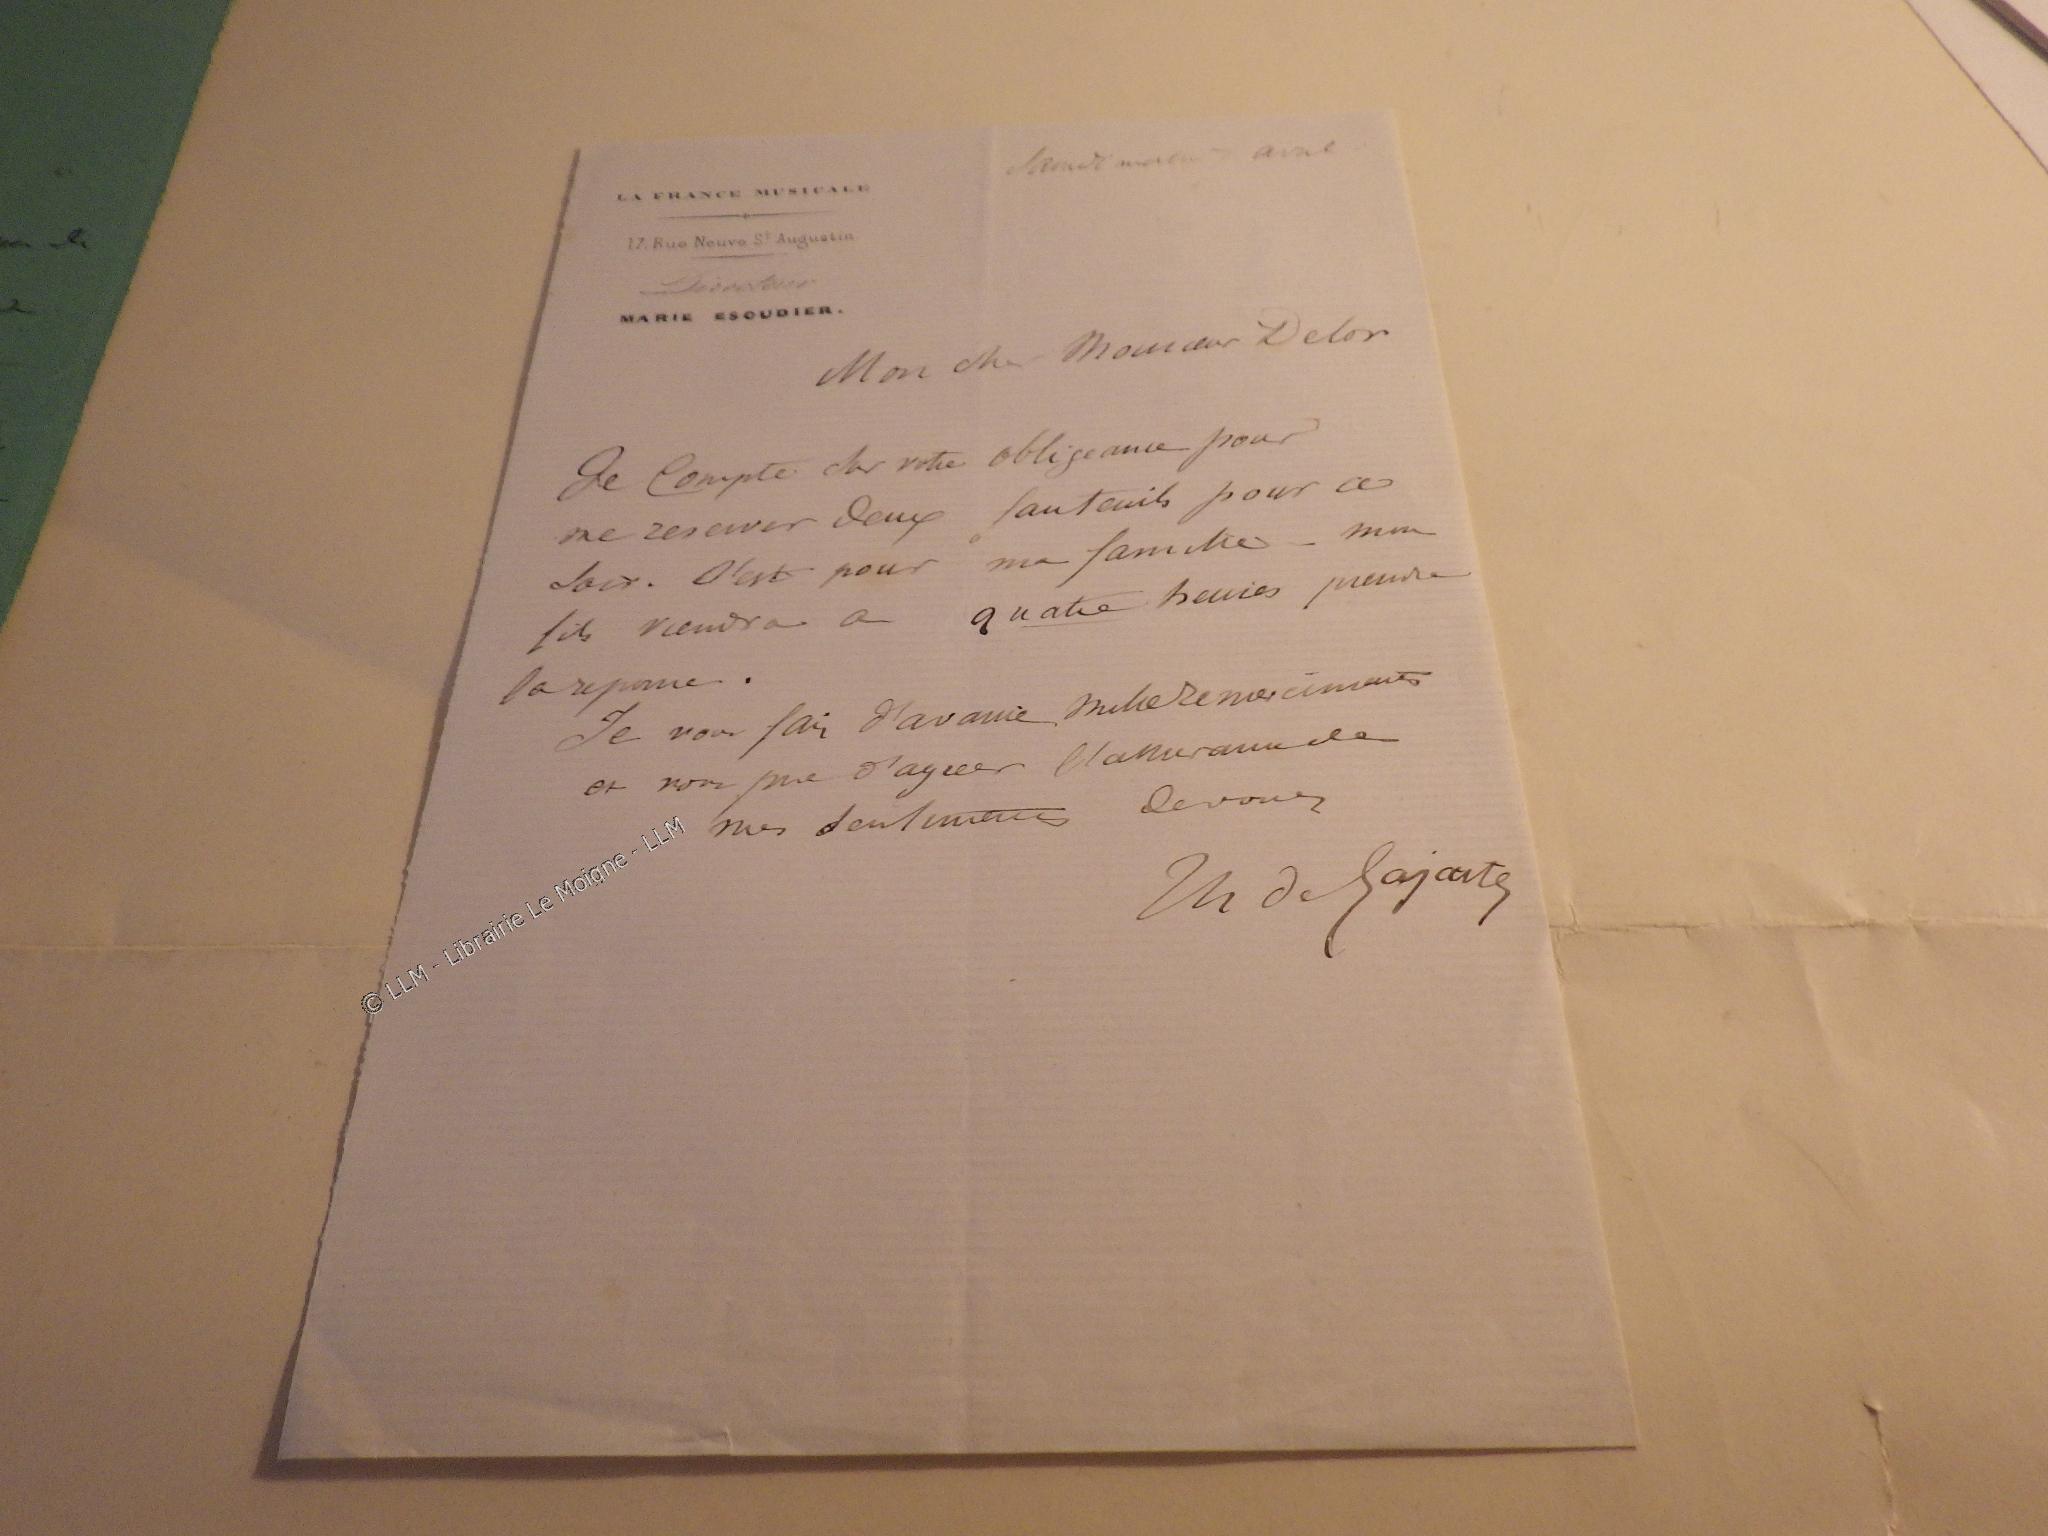 LA FRANCE MUSICALE
17, Rue Neuve St Augustin
Directeur
MARIE ESCUDIER.
avril
Mon cher Monsieur Delor
Je Compte sur votre obligeance pour
me reserver deux fauteuils pour ce
soir. C'est pour ma famille - mon
fils viendra a quatre heures prendre
la reponse.
Je vous fais d'avance mille remerciments
et vous prie d'agreer l'assurance de
mes sentiments devoues
Th de Lajarte
© LLM - Librairie Le Moigne - LLM